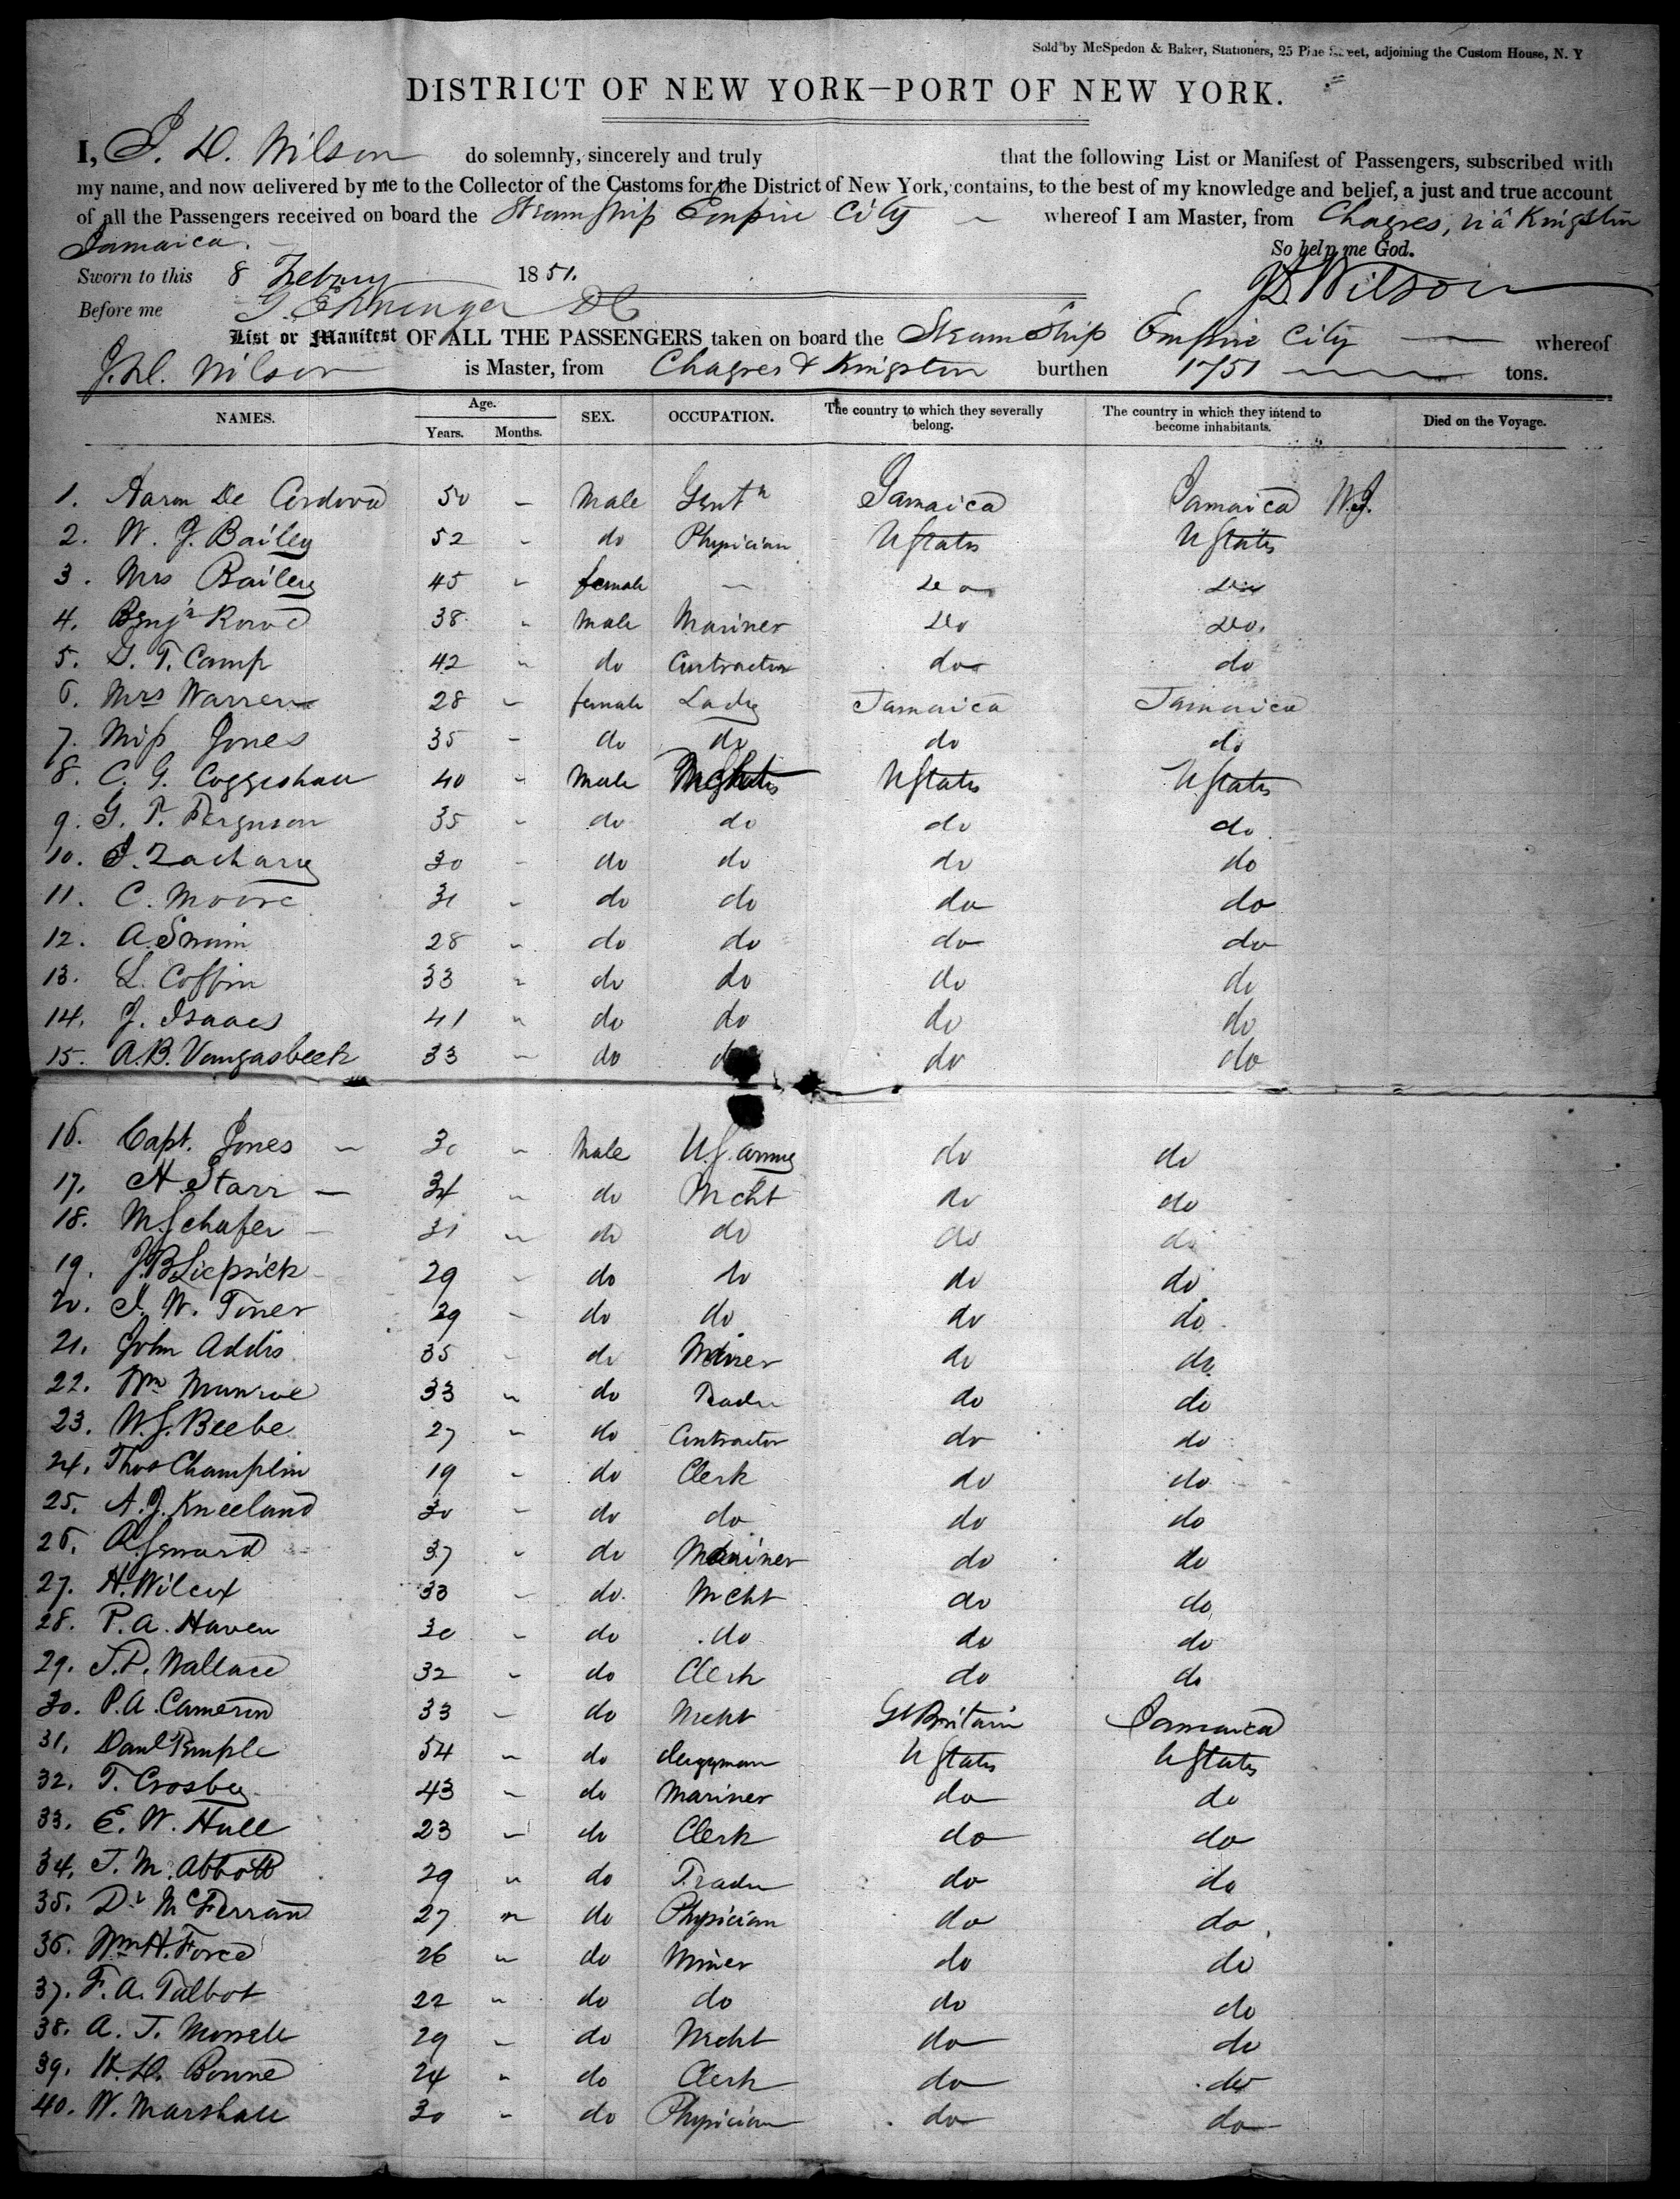 Sold by McSpedon & Baker, Stationers, 25 Pine Street, adjoining the Custom House, N. Y
DISTRICT OF NEW YORK—PORT OF NEW YORK.
I, J. D. Wilson do solemnly, sincerely and truly that the following List or Manifest of Passengers, subscribed with
my name, and now delivered by me to the Collector of the Customs for the District of New York, contains, to the best of my knowledge and belief, a just and true account
of all the Passengers received on board the Steamship Empire City whereof I am Master, from Chagres, via Kingston
Jamaica. So help me God.
Sworn to this 8 Februy 1851. J D Wilson
Before me
List or Manifest OF ALL THE PASSENGERS taken on board the Steam Ship Empire City whereof
J. D. Wilson is Master, from Chagres & Kingston burthen 1751 tons.
NAMES. Age. Years. Months. SEX. OCCUPATION. The country to which they severally belong. The country in which they intend to become inhabitants. Died on the Voyage.
1. Aaron De Cordova 50 - Male Gentn Jamaica Jamaica W.I.
2. W. J. Bailey 52 " do Physician U States U States
3. Mrs Bailey 45 " female — do do
4. Benjn 38 " Male Mariner do do
5. G. T. Camp 42 " do Contractor do do
6. Mrs Warren 28 " female Lady Jamaica Jamaica
7. Miss Jones 35 " do do do do
8. C. G. Coggeshall 40 " Male U States U States
9. G. P. Ferguson 35 " do do do do
10. J. Zachary 30 " do do do do
11. C. Moore 31 " do do do do
12. A. Swain 28 " do do do do
13. L. Coffin 33 " do do do do
14. J. Isaacs 41 " do do do do
15. A. B. Vangasbeek 33 " do do do do
16. Capt. Jones — 30 " Male U.S. army do do
17. H Starr — 34 " do Mcht do do
18. M Schafer — 31 " do do do do
19. J. B. 29 " do do do do
20. J. W. Toner 29 " do do do do
21. John Addis 35 " do Miner do do
22. Wm Munroe 33 " do Trader do do
23. W. S. Beebe 27 " do Contractor do do
24. Thos Champlin 19 " do Clerk do do
25. A. J. Kneeland 30 " do do do do
26. A Seward 37 " do Mariner do do
27. H. Wilcox 33 " do Mcht do do
28. P. A. Haven 30 " do do do do
29. J. P. Wallace 32 " do Clerk do do
30. P. A. Cameron 33 " do Mcht Gt Britain Jamaica
31. Danl Temple 54 " do Clergyman U States U States
32. T. Crosby 43 " do Mariner do do
33. E. W. Hull 23 " do Clerk do do
34. J. M. Abbott 29 " do Trader do do
35. Dr McFerran 27 " do Physician do do
36. Wm H. Force 26 " do Miner do do
37. F. A. Talbot 22 " do do do do
38. A. J. Morrell 29 " do Mcht do do
39. W. D. Bonne 24 " do Clerk do do
40. W. Marshall 30 " do Physician do do